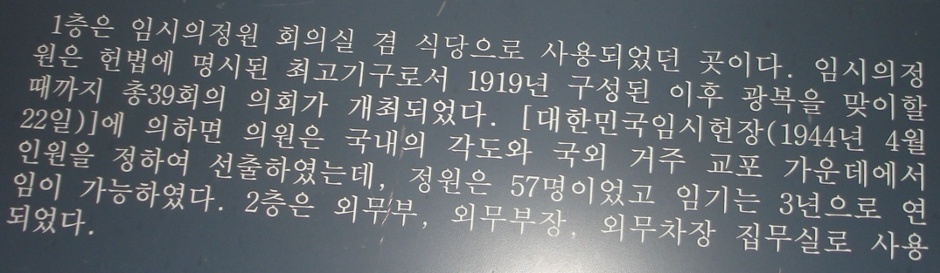 1층은 임시의정원 회의실 겸 식당으로 사용되었던 곳이다. 임시의정
원은 헌법에 명시된 최고기구로서 1919년 구성된 이후 광복을 맞이할
때까지 총39회의 의회가 개최되었다. [대한민국임시헌장(1944년 4월
22일)]에 의하면 의원은 국내의 각도와 국외 거주 교포 가운데에서
인원을 정하여 선출하였는데, 정원은 57명이었고 임기는 3년으로 연
임이 가능하였다. 2층은 외무부, 외무부장, 외무차장 집무실로 사용
되었다.